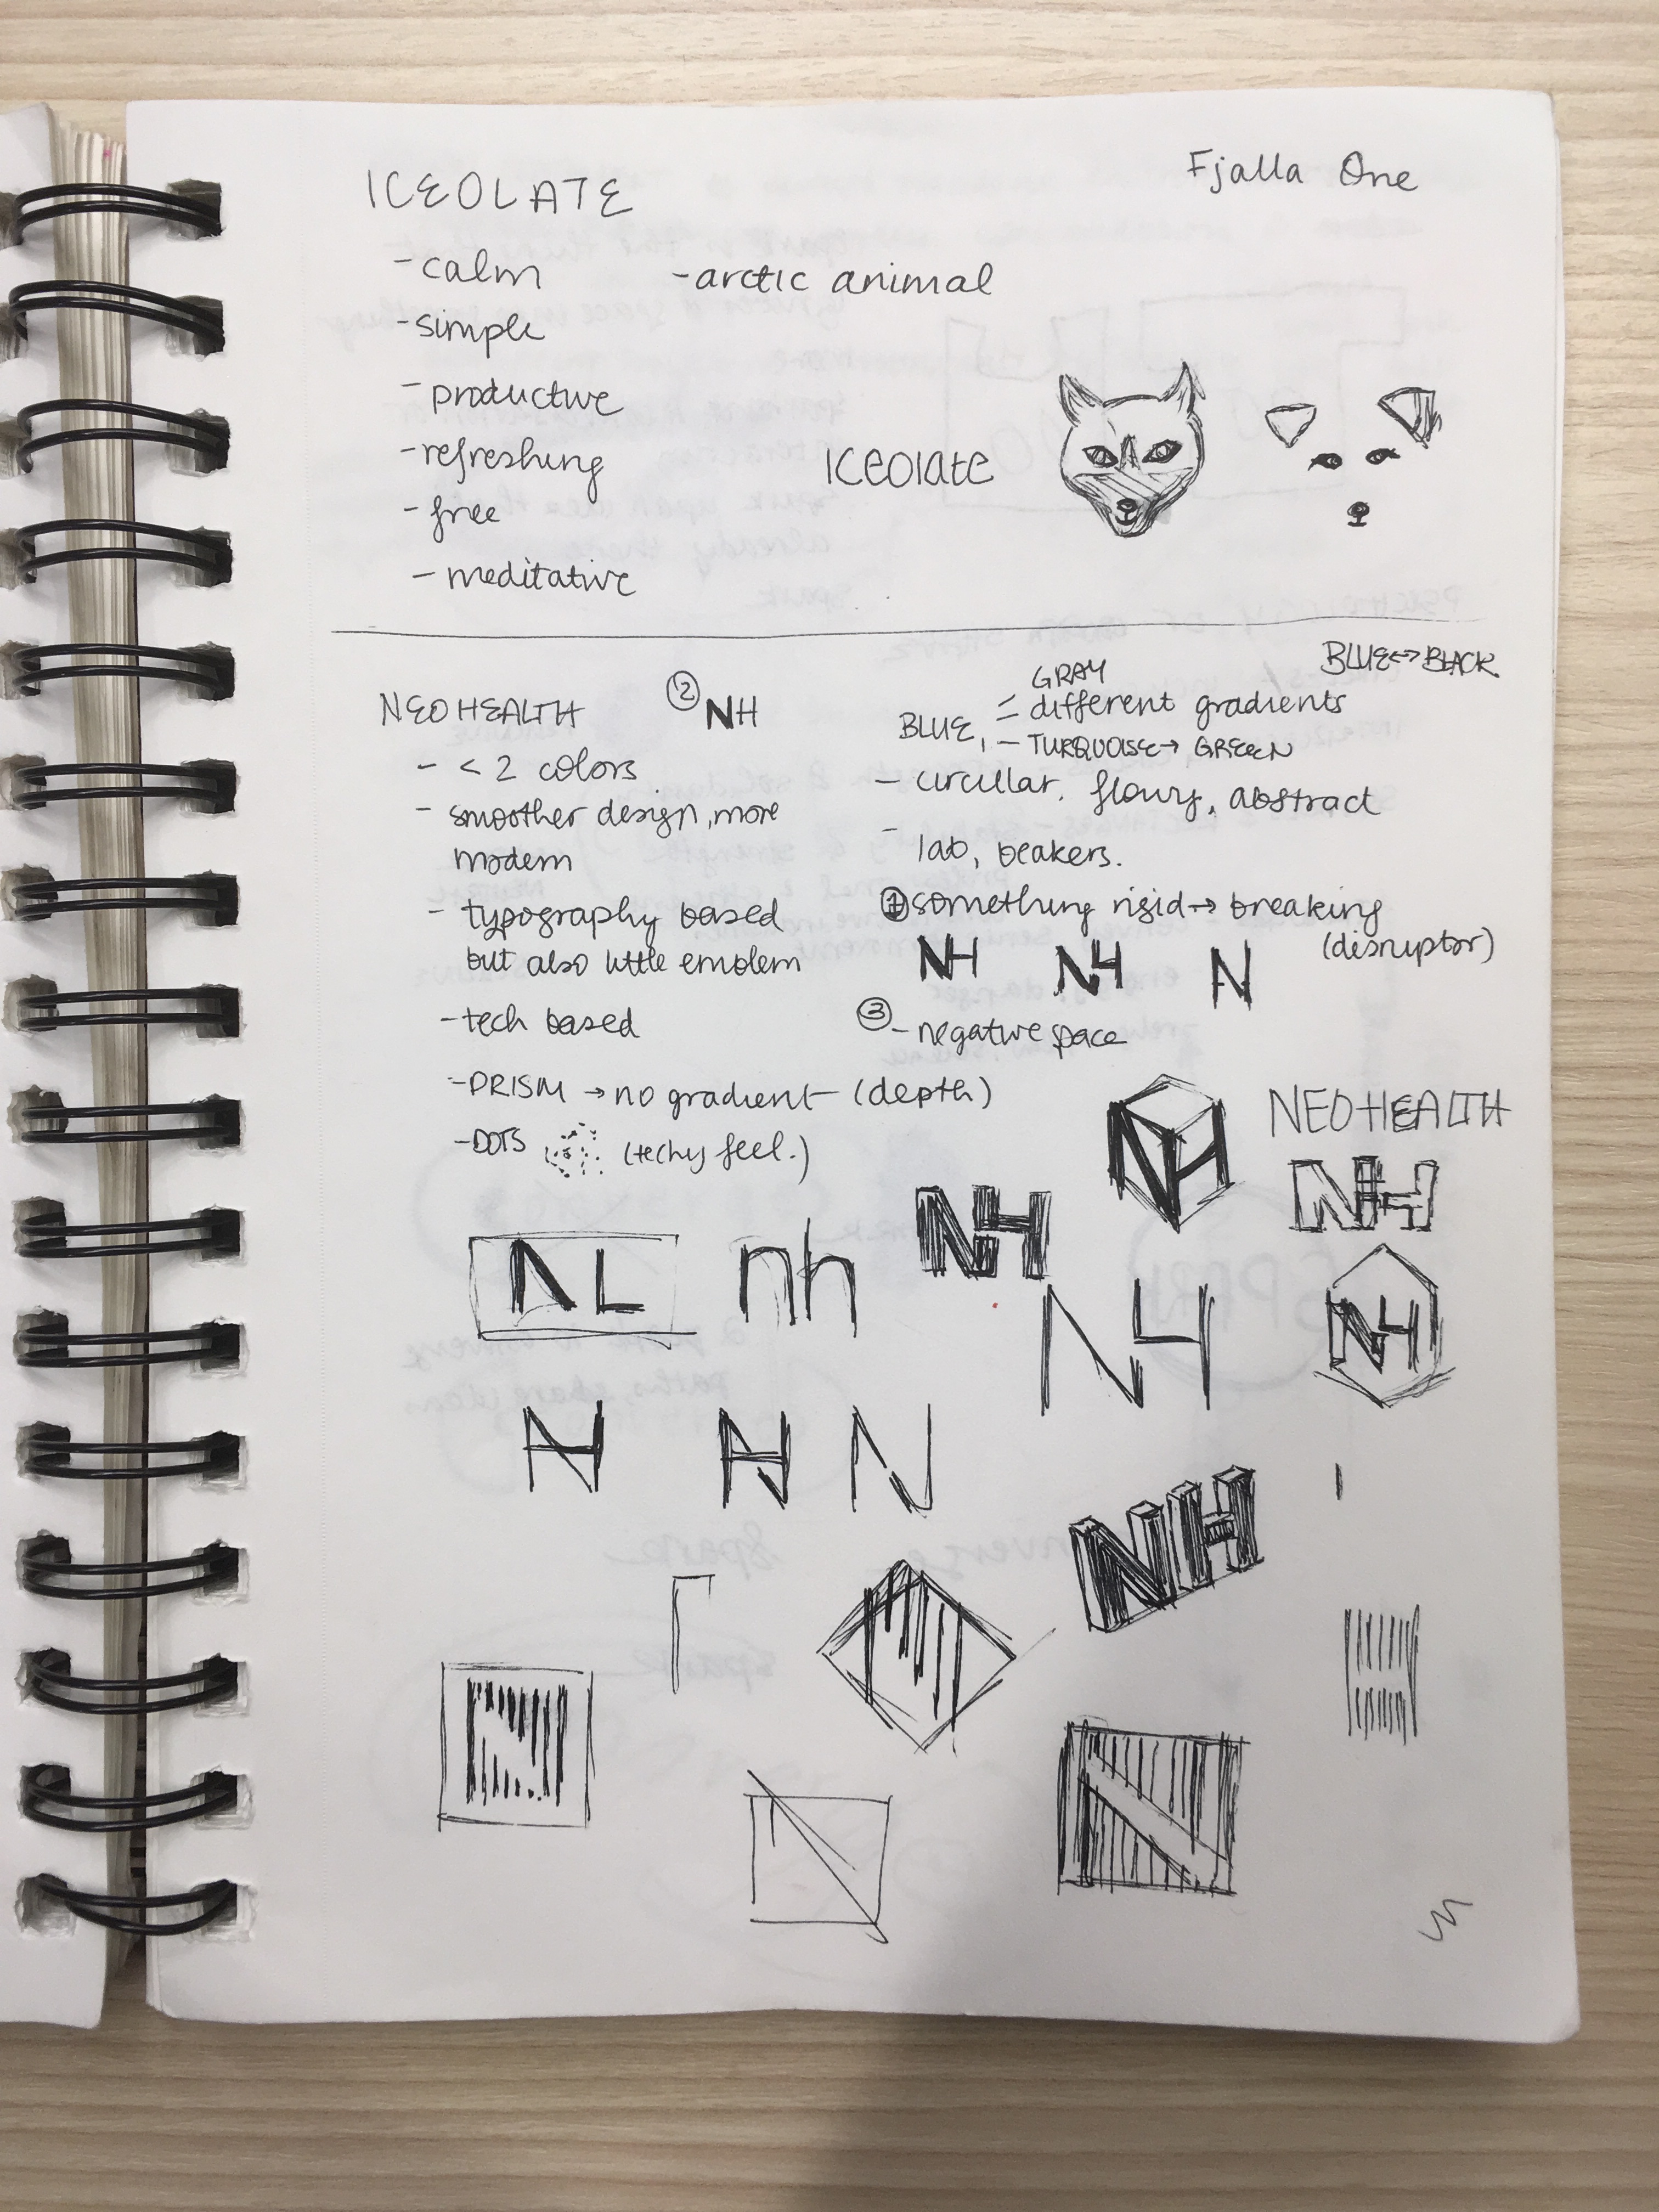 ICEOLATE
Fjalla One
- calm
- arctic animal
- simple
- productive
- refreshing
- free
- meditative
ICEOlate
NEOHEALTH
② NH
- < 2 colors
- smoother design, more
modern
- typography based
but also little emblem
- tech based
- PRISM → no gradient (depth)
- DOTS (techy feel.)
BLUE ↔ BLACK
GRAY
BLUE, - different gradients
- TURQUOISE → GREEN
- circular, flowy, abstract
- lab, beakers.
① something rigid → breaking
(disruptor)
NH NH N
③ - negative space
NH
NEOHEALTH
NH
NH
nh
NH
NH
N
NH
N